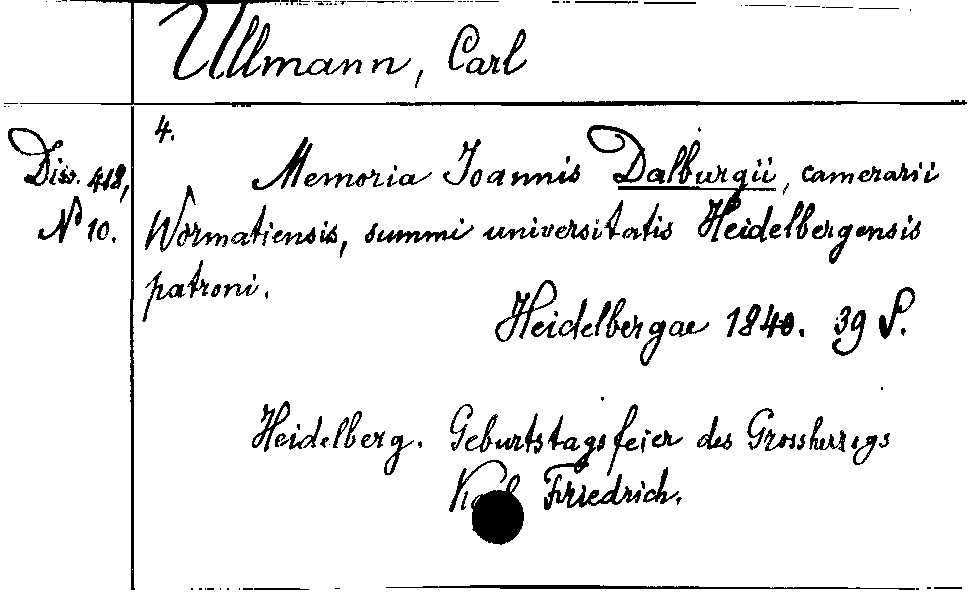 Ullmann, Carl
4.
Diss. 412,
No 10.
Memoria Ioannis Dalburgii, camerarii
Wormatiensis, summi universitatis Heidelbergensis
patroni.
Heidelbergae 1840. 39 S.
Heidelberg. Geburtstagsfeier des Grossherzogs
Karl Friedrich.